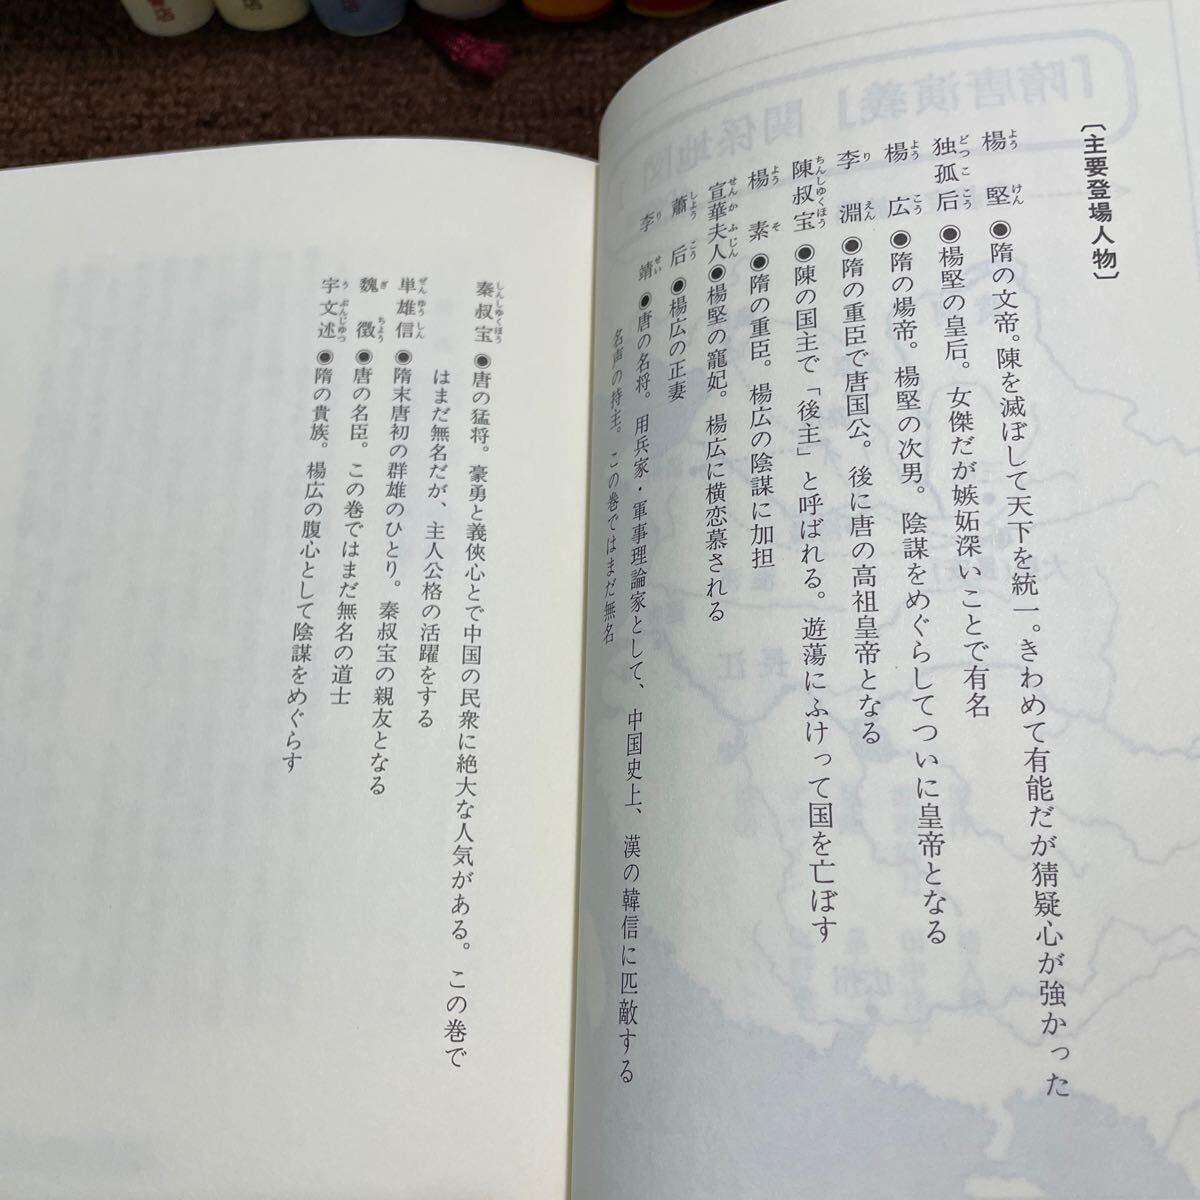 〔主要登場人物〕
楊堅 ●隋の文帝。陳を滅ぼして天下を統一。きわめて有能だが猜疑心が強かった
ようけん
独孤后 ●楊堅の皇后。女傑だが嫉妬深いことで有名
どっここう
楊広 ●隋の煬帝。楊堅の次男。陰謀をめぐらしてついに皇帝となる
ようこう
李淵 ●隋の重臣で唐国公。後に唐の高祖皇帝となる
りえん
陳叔宝 ●陳の国主で「後主」と呼ばれる。遊蕩にふけって国を亡ぼす
ちんしゅくほう
楊素 ●隋の重臣。楊広の陰謀に加担
ようそ
宣華夫人 ●楊堅の寵妃。楊広に横恋慕される
せんかふじん
蕭后 ●楊広の正妻
しょうこう
李靖 ●唐の名将。用兵家・軍事理論家として、中国史上、漢の韓信に匹敵する
りせい
名声の持主。この巻ではまだ無名
秦叔宝 ●唐の猛将。豪勇と義俠心とで中国の民衆に絶大な人気がある。この巻で
しんしゅくほう
はまだ無名だが、主人公格の活躍をする
単雄信 ●隋末唐初の群雄のひとり。秦叔宝の親友となる
ぜんゆうしん
魏徴 ●唐の名臣。この巻ではまだ無名の道士
ぎちょう
宇文述 ●隋の貴族。楊広の腹心として陰謀をめぐらす
うぶんじゅつ
『隋唐演義』関係地図
長江
広州